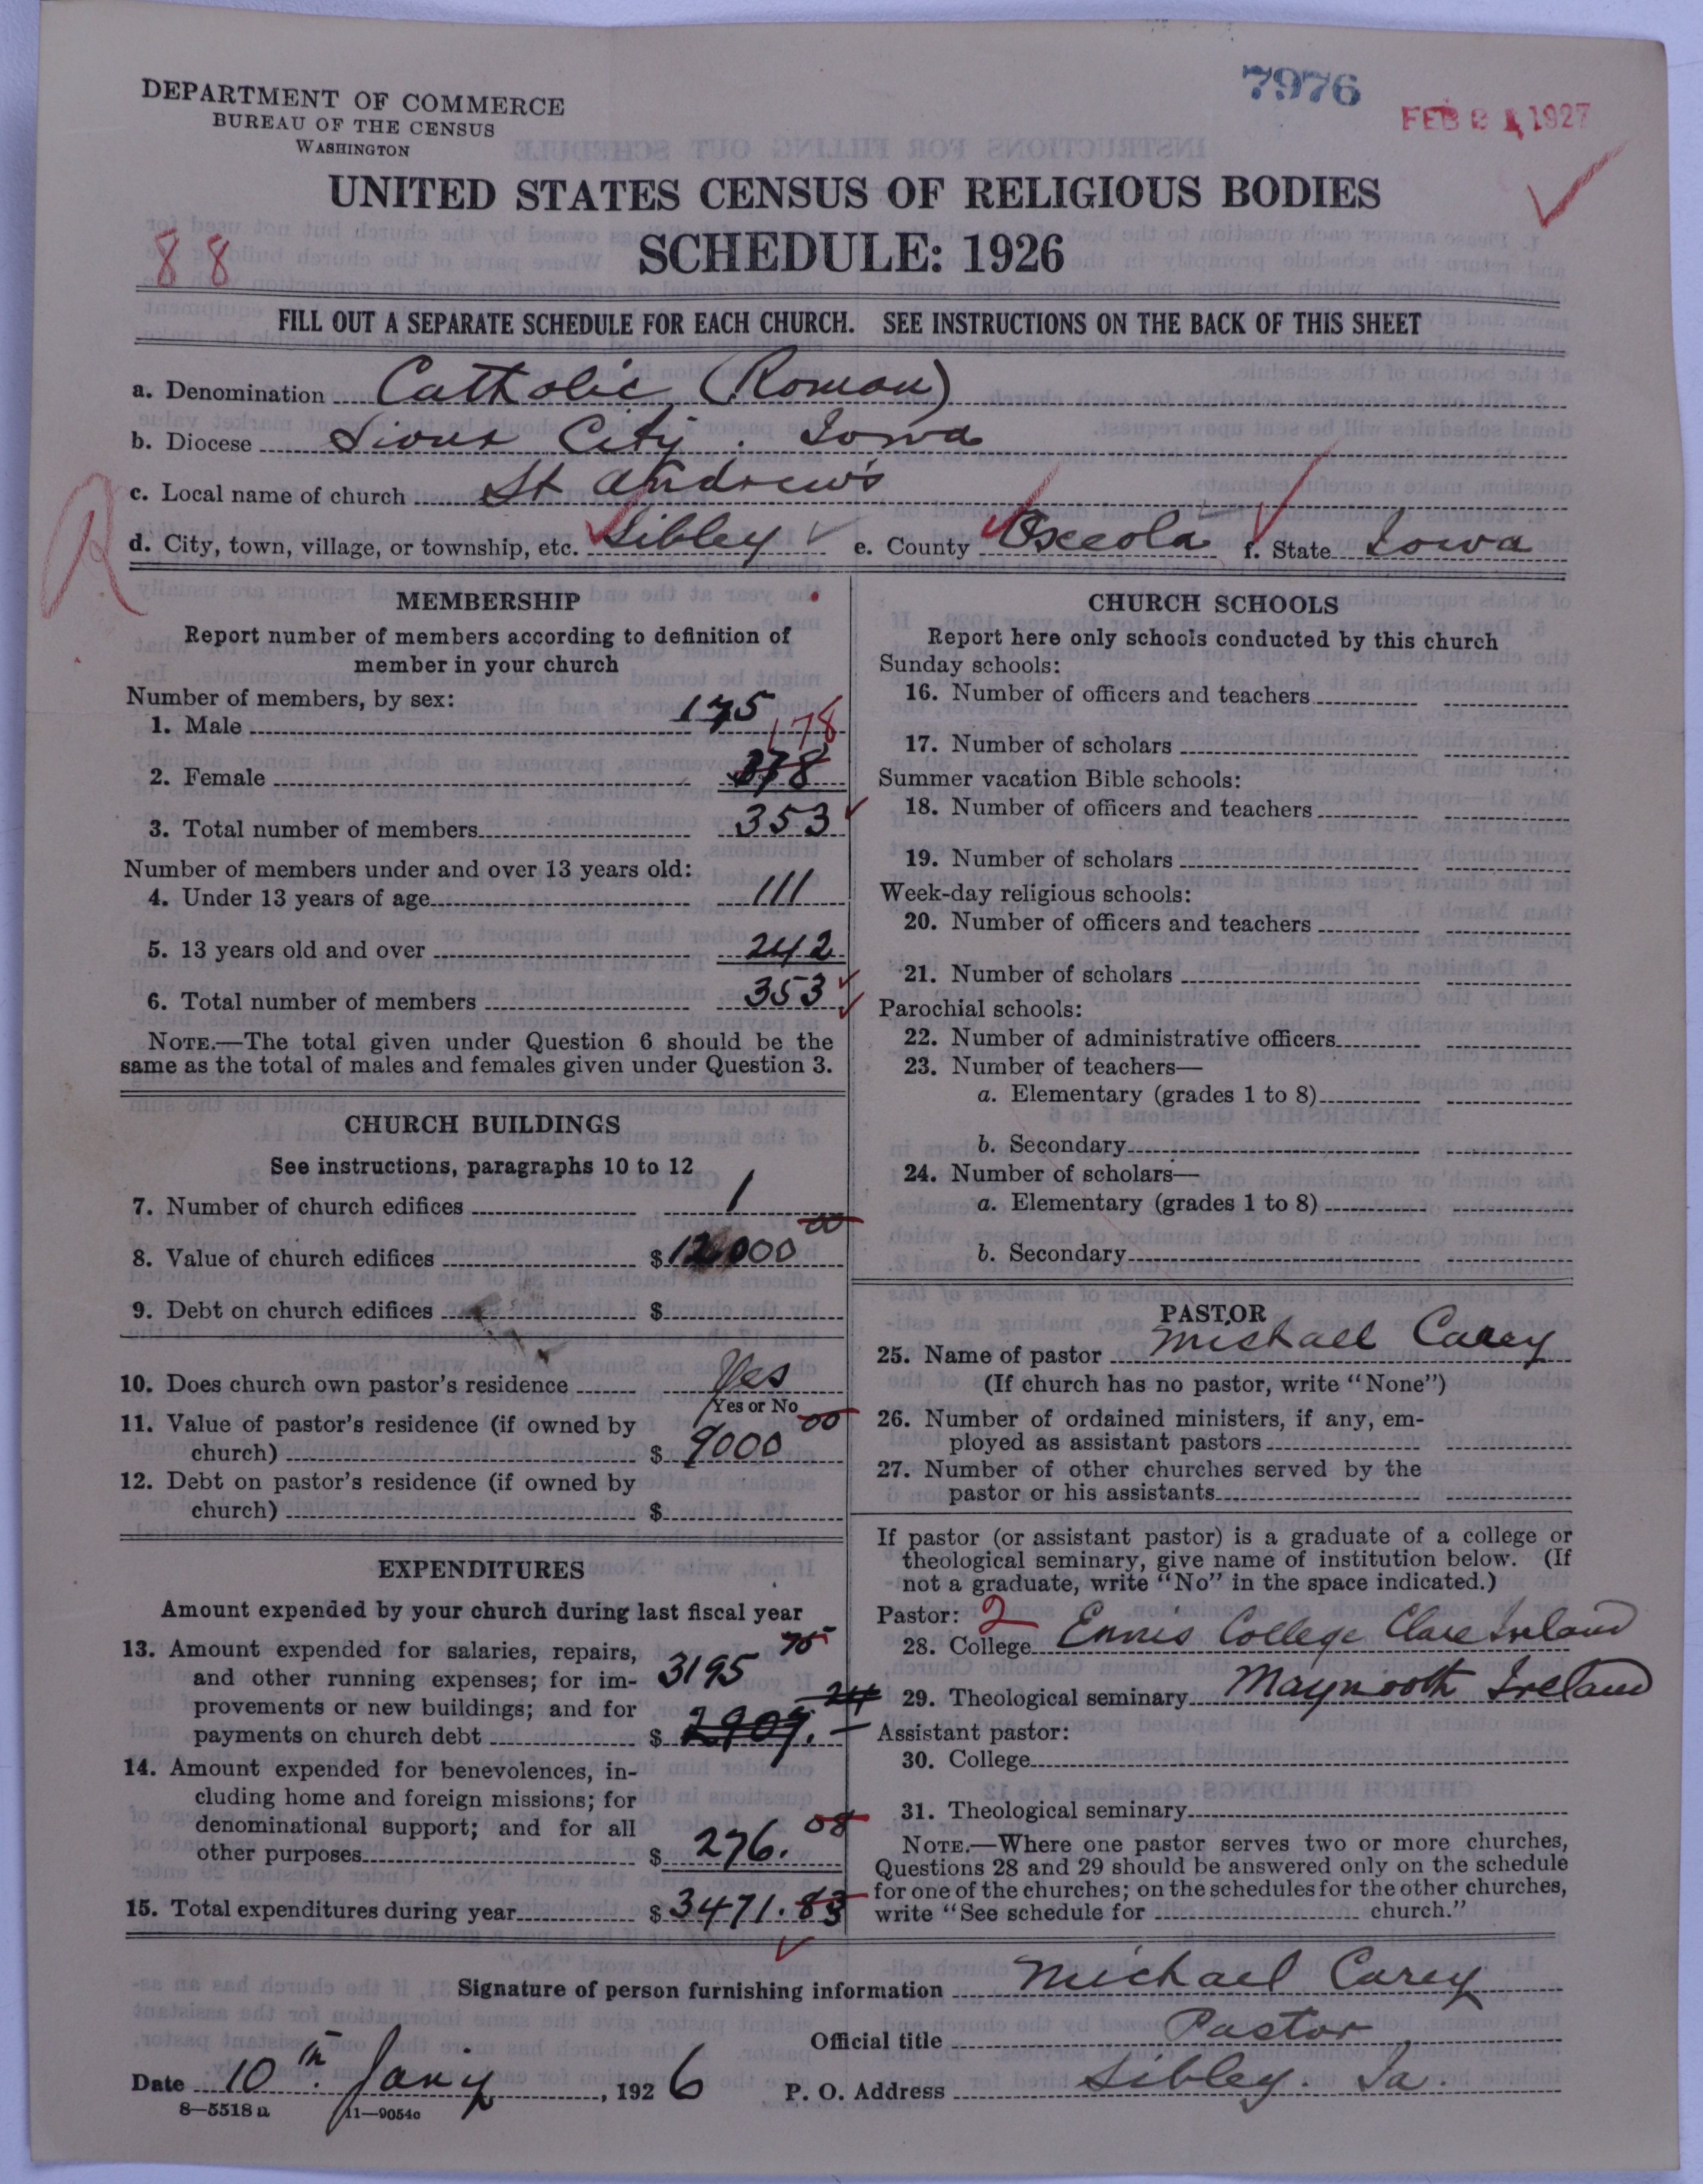 7976
FEB 21 1927
DEPARTMENT OF COMMERCE
BUREAU OF THE CENSUS
WASHINGTON
UNITED STATES CENSUS OF RELIGIOUS BODIES
SCHEDULE: 1926
88
FILL OUT A SEPARATE SCHEDULE FOR EACH CHURCH. SEE INSTRUCTIONS ON THE BACK OF THIS SHEET
a. Denomination Catholic (Roman)
b. Diocese Sioux City. Iowa
c. Local name of church St Andrew's
R
d. City, town, village, or township, etc. Sibley e. County Osceola f. State Iowa
MEMBERSHIP
Report number of members according to definition of
member in your church
Number of members, by sex:
1. Male 175
178
2. Female 378
3. Total number of members 353
Number of members under and over 13 years old:
4. Under 13 years of age 111
5. 13 years old and over 242
6. Total number of members 353
NOTE.—The total given under Question 6 should be the
same as the total of males and females given under Question 3.
CHURCH BUILDINGS
See instructions, paragraphs 10 to 12
7. Number of church edifices 1
8. Value of church edifices $12000 00
9. Debt on church edifices $
10. Does church own pastor's residence Yes
Yes or No
11. Value of pastor's residence (if owned by
church) $ 9000 00
12. Debt on pastor's residence (if owned by
church) $
EXPENDITURES
Amount expended by your church during last fiscal year
13. Amount expended for salaries, repairs,
and other running expenses; for im- 3195 75
provements or new buildings; and for
payments on church debt $ 2909. 24
14. Amount expended for benevolences, in-
cluding home and foreign missions; for
denominational support; and for all
other purposes $ 276. 08
15. Total expenditures during year $ 3471. 83
CHURCH SCHOOLS
Report here only schools conducted by this church
Sunday schools:
16. Number of officers and teachers
17. Number of scholars
Summer vacation Bible schools:
18. Number of officers and teachers
19. Number of scholars
Week-day religious schools:
20. Number of officers and teachers
21. Number of scholars
Parochial schools:
22. Number of administrative officers
23. Number of teachers—
a. Elementary (grades 1 to 8)
b. Secondary
24. Number of scholars—
a. Elementary (grades 1 to 8)
b. Secondary
PASTOR
25. Name of pastor Michael Carey
(If church has no pastor, write "None")
26. Number of ordained ministers, if any, em-
ployed as assistant pastors
27. Number of other churches served by the
pastor or his assistants
If pastor (or assistant pastor) is a graduate of a college or
theological seminary, give name of institution below. (If
not a graduate, write "No" in the space indicated.)
Pastor: 2
28. College Ennis College Clare Ireland
29. Theological seminary Maynooth Ireland
Assistant pastor:
30. College
31. Theological seminary
NOTE.—Where one pastor serves two or more churches,
Questions 28 and 29 should be answered only on the schedule
for one of the churches; on the schedules for the other churches,
write "See schedule for church."
Signature of person furnishing information Michael Carey
Official title Pastor
Date 10th. Jany, 1926 P. O. Address Sibley. Ia.
8—5518 a 11—9054c